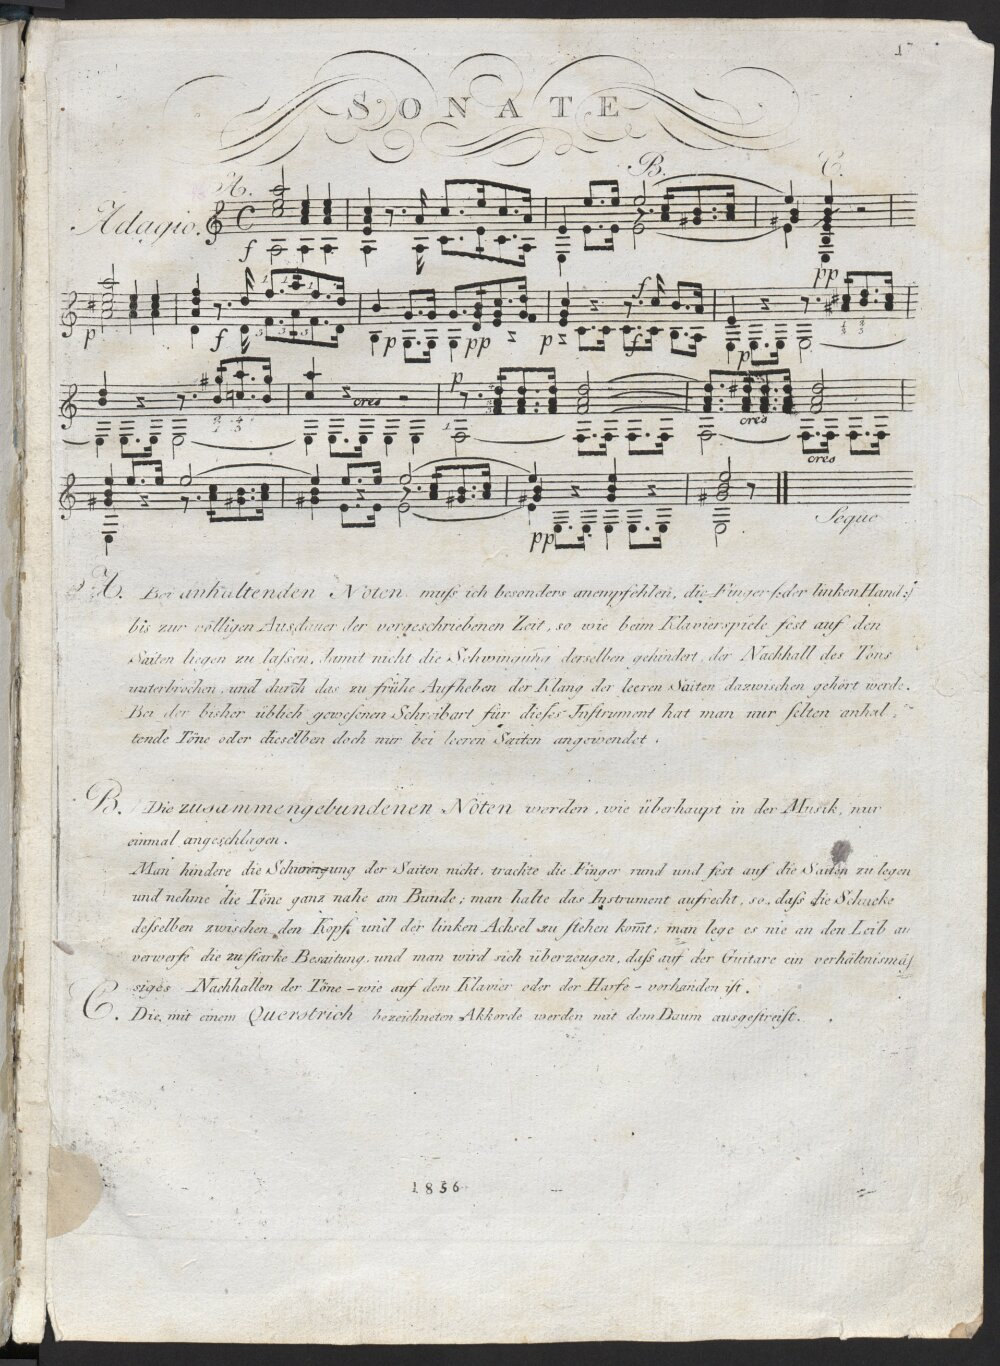 1
SONATE
A. B. C.
Adagio. f pp
p f p pp p f p
cres p cres cres
pp Seque
A. Bei anhaltenden Noten muſs ich besonders anempfehlen, die Finger /:der linken Hand:/
bis zur völligen Ausdauer der vorgeschriebenen Zeit, so wie beim Klavierspiele fest auf den
Saiten liegen zu laſsen, damit nicht die Schwingung derselben gehindert, der Nachhall des Tons
unterbrochen, und durch das zu frühe Aufheben der Klang der leeren Saiten dazwischen gehört werde.
Bei der bisher üblich geweſenen Schreibart für dieſes Jnſtrument hat man nur ſelten anhal-
tende Töne oder dieselben doch nur bei leeren Saiten angewendet.
B. Die zusammengebundenen Noten werden, wie überhaupt in der Musik, nur
einmal angeschlagen.
Man hindere die Schwingung der Saiten nicht, trachte die Finger rund und fest auf die Saiten zu legen
und nehme die Töne ganz nahe am Bunde; man halte das Instrument aufrecht, so, daſs die Schnecke
deſselben zwischen den Kopf und der linken Achsel zu ſtehen kom̅t; man lege es nie an den Leib an
verwerfe die zu ſtarke Besaitung, und man wird sich überzeugen, daſs auf der Guitare ein verhältnismäſ
siges Nachhallen der Töne - wie auf dem Klavier oder der Harfe - vorhanden iſt.
C. Die, mit einem Querstrich bezeichneten Akkorde werden mit dem Daum ausgeſtreift.
1856